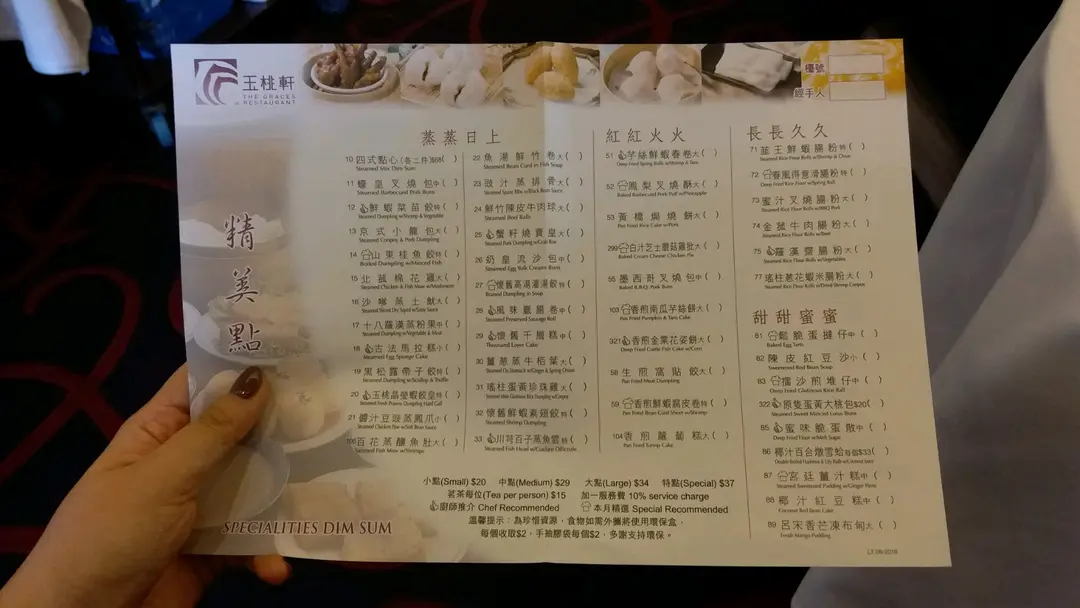 玉桃軒
THE GRACES
RESTAURANT
檯號
經手人
精美點
SPECIALITIES DIM SUM
蒸蒸日上
10 四式點心(各二件)$68( )
Steamed Mix Dim Sum
11 蠔皇叉燒包中( )
Steamed Barbecued Pork Buns
12 鮮蝦菜苗餃特( )
Steamed Dumpling w/Shrimp & Vegetable
13 京式小籠包大( )
Steamed Conpoy & Pork Dumpling
14 山東桂魚餃特( )
Boiled Dumpling w/Minced Fish
15 北菇棉花雞大( )
Steamed Chicken & Fish Maw w/Mushroom
16 沙嗲蒸土魷大( )
17 十八羅漢蒸粉果中( )
Steamed Dumpling w/Vegetable & Meat
18 古法馬拉糕小( )
Steamed Egg Sponge Cake
19 黑松露帶子餃特( )
Steamed Dumpling w/Scallop & Truffle
20 玉桃晶瑩蝦餃皇特( )
21 醬汁豆豉蒸鳳爪小( )
百花蒸釀魚肚大( )
Steamed Fish Maw w/Shrimps
22 魚湯鮮竹卷大( )
Steamed Bean Curd in Fish Soup
23 豉汁蒸排骨大( )
Steamed Spare Ribs w/Black Bean Sauce
24 鮮竹陳皮牛肉球大( )
Steamed Beef Balls
25 蟹籽燒賣皇大( )
Steamed Pork Dumpling w/Crab Roe
26 奶皇流沙包中( )
Steamed Egg Yolk Cream Buns
27 懷舊高湯灌湯餃特( )
Steamed Dumpling in Soup
28 風味臘腸卷中( )
Steamed Preserved Sausage Roll
29 懷舊千層糕中( )
Thousand Layer Cake
30 薑蔥蒸牛栢葉大( )
Steamed Ox Stomach w/Ginger & Spring Onion
31 瑤柱蛋黃珍珠雞大( )
32 懷舊鮮蝦素翅餃特( )
Steamed Shrimp Dumpling
33 川芎百子蒸魚雲特( )
Steamed Fish Head w/Cordate Officinale
紅紅火火
51 芋絲鮮蝦春卷大( )
Deep Fried Spring Rolls w/Shrimp & Taro
52 鳳梨叉燒酥大( )
Baked Barbecued Pork Puff w/Pineapple
53 黃橋焗燒餅大( )
Pan Fried Rice Cake w/Pork
299 白汁芝士蘑菇雞批大( )
Baked Cream Cheese Chicken Pie
55 墨西哥叉燒包中( )
Baked B.B.Q. Pork Buns
103 香煎南瓜芋絲餅大( )
Pan Fried Pumpkin & Taro Cake
321 香煎金粟花姿餅大( )
Deep Fried Cuttle Fish Cake w/Corn
58 生煎窩貼餃大( )
Pan Fried Meat Dumpling
59 香煎鮮蝦腐皮卷特( )
Pan Fried Bean Curd Sheet w/Shrimp
104 香煎蘿蔔糕大( )
Pan Fried Turnip Cake
長長久久
71 韮王鮮蝦腸粉特( )
Steamed Rice Flour Rolls w/Shrimp & Chive
72 春風得意滑腸粉特( )
Deep Fried Rice Flour w/Spring Roll
73 蜜汁叉燒腸粉大( )
Steamed Rice Flour Rolls w/BBQ Pork
74 金菇牛肉腸粉大( )
Steamed Rice Flour Rolls w/Beef
75 羅漢齋腸粉大( )
Steamed Rice Flour Rolls w/Vegetables
77 瑤柱蔥花蝦米腸粉大( )
Steamed Rice Flour Rolls w/Dried Shrimp Conpoy
甜甜蜜蜜
81 鬆脆蛋撻仔中( )
Baked Egg Tarts
82 陳皮紅豆沙小( )
Sweetened Red Bean Soup
83 擂沙煎堆仔中( )
Deep Fried Glutinous Rice Ball
322 原隻蛋黃大桃包$20( )
Steamed Sweet Minced Lotus Buns
85 蜜味脆蛋散中( )
Deep Fried Flour w/Melt Sugar
86 椰汁百合燉雪蛤每個$33( )
87 宮廷薑汁糕中( )
Steamed Sweetened Pudding w/Ginger Piece
88 椰汁紅豆糕中( )
Coconut Red Bean Cake
89 呂宋香芒凍布甸大( )
Fresh Mango Pudding
小點(Small) $20 中點(Medium) $29 大點(Large) $34 特點(Special) $37
茗茶每位(Tea per person) $15 加一服務費 10% service charge
廚師推介 Chef Recommended 本月精選 Special Recommended
溫馨提示：為珍惜資源，食物如需外攜將使用環保盒，
每個收取$2，手抽膠袋每個$2，多謝支持環保。